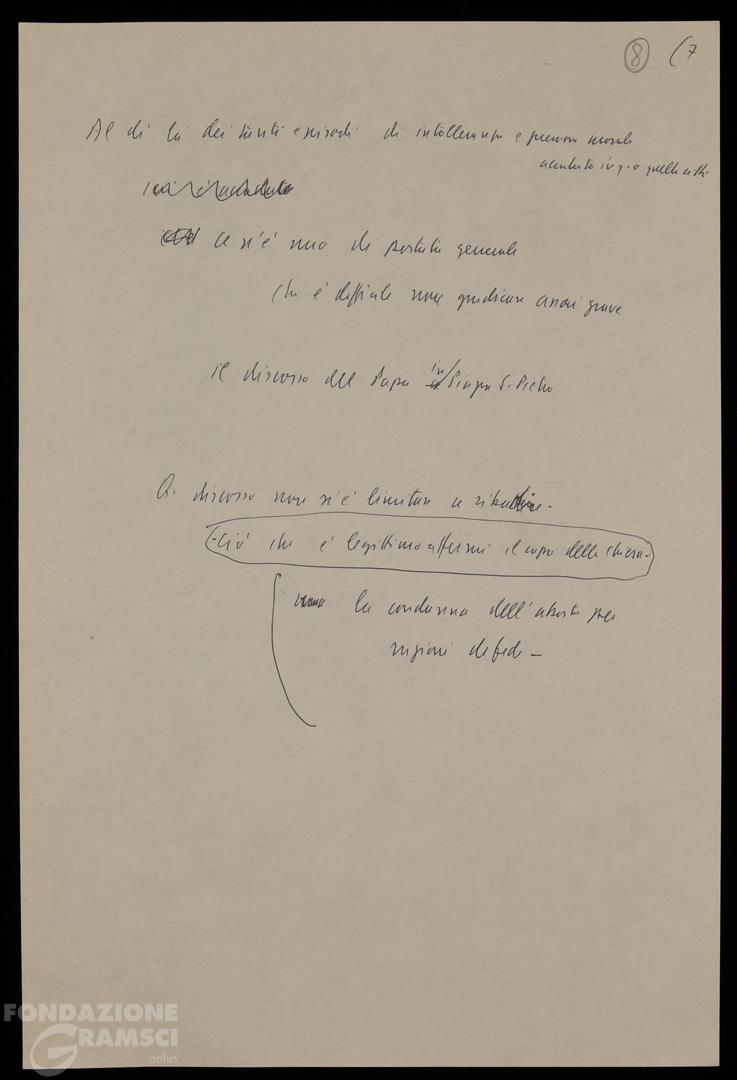 8 (7
Al di là dei tanti episodi di intolleranza e pressione morale
accaduto in q. o quella città
ce n'è uno di portata generale
che è difficile non giudicare assai grave
il discorso del Papa in Piazza S. Pietro
Q. discorso non si è limitato a ribadire -
- Ciò che è legittimo affermi il capo della chiesa -
la condanna dell'aborto per
ragioni di fede -
FONDAZIONE
GRAMSCI
onlus